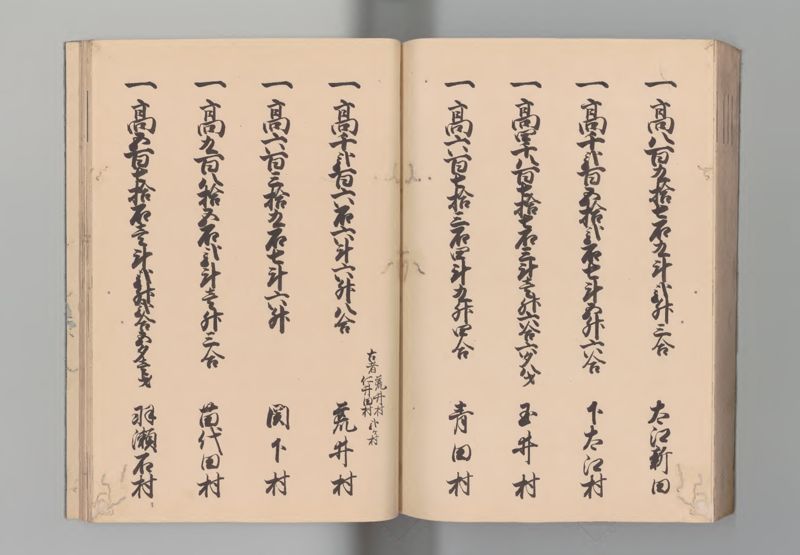 一高八百九拾七石九斗弐升三合 太江新田
一高千弐百五拾弐石七斗五升六合 下太江村
一高 百七拾七石三斗壱升八合六夕八才 玉井村
一高六百七拾三石四斗九升四合 青田村
一高千弐百六石六斗六升八合 荒井村
古者 荒井村 仁井田村 弐ヶ村
一高六百三拾九石七斗六升 関下村
一高九百八拾五石弐斗壱升三合 苗代田村
一高五百七拾石壱斗弐升弐合五夕壱才 羽瀬石村